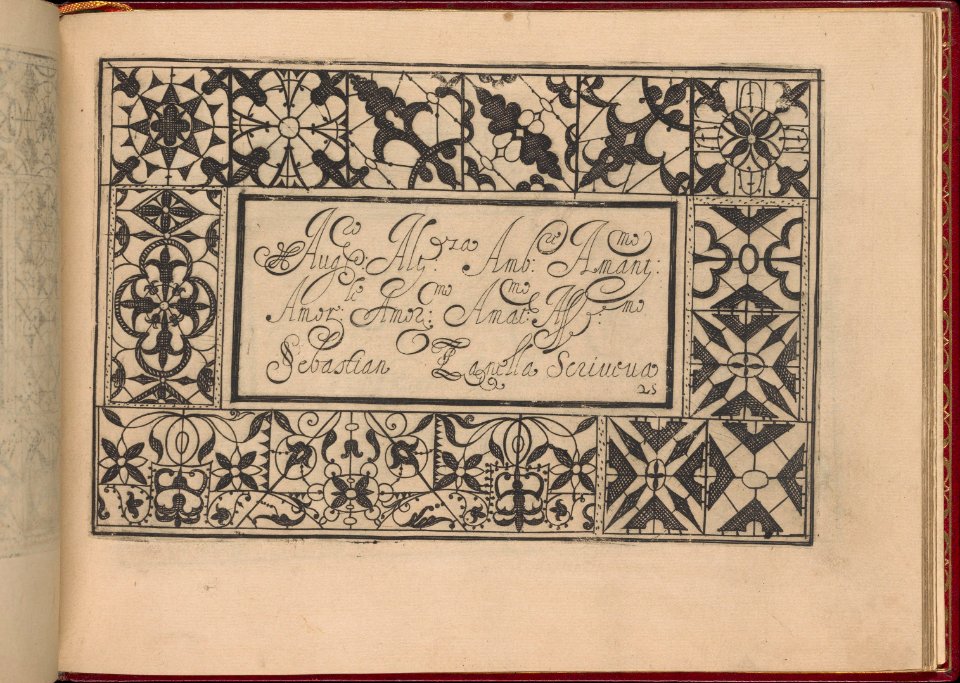 Aug^{co}: Alt^{za}: Amb^{re}: Amant^{mo}:
Amor^{le}: Amor^{mo}: Amat^{mo}: Aff^{mo}:
Sebastian Zanella Scriveva
25